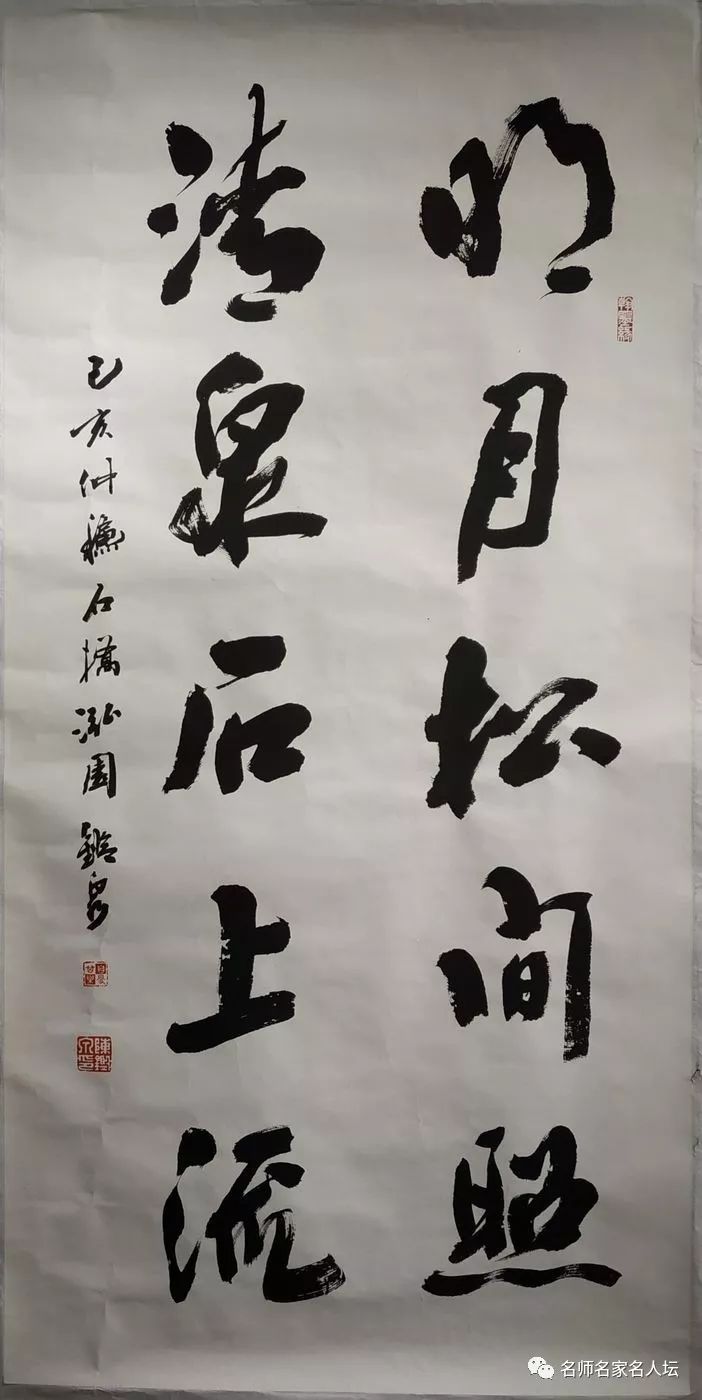 明月松间照
清泉石上流
己亥仲穐石橋泓園鑑泉
名师名家名人坛